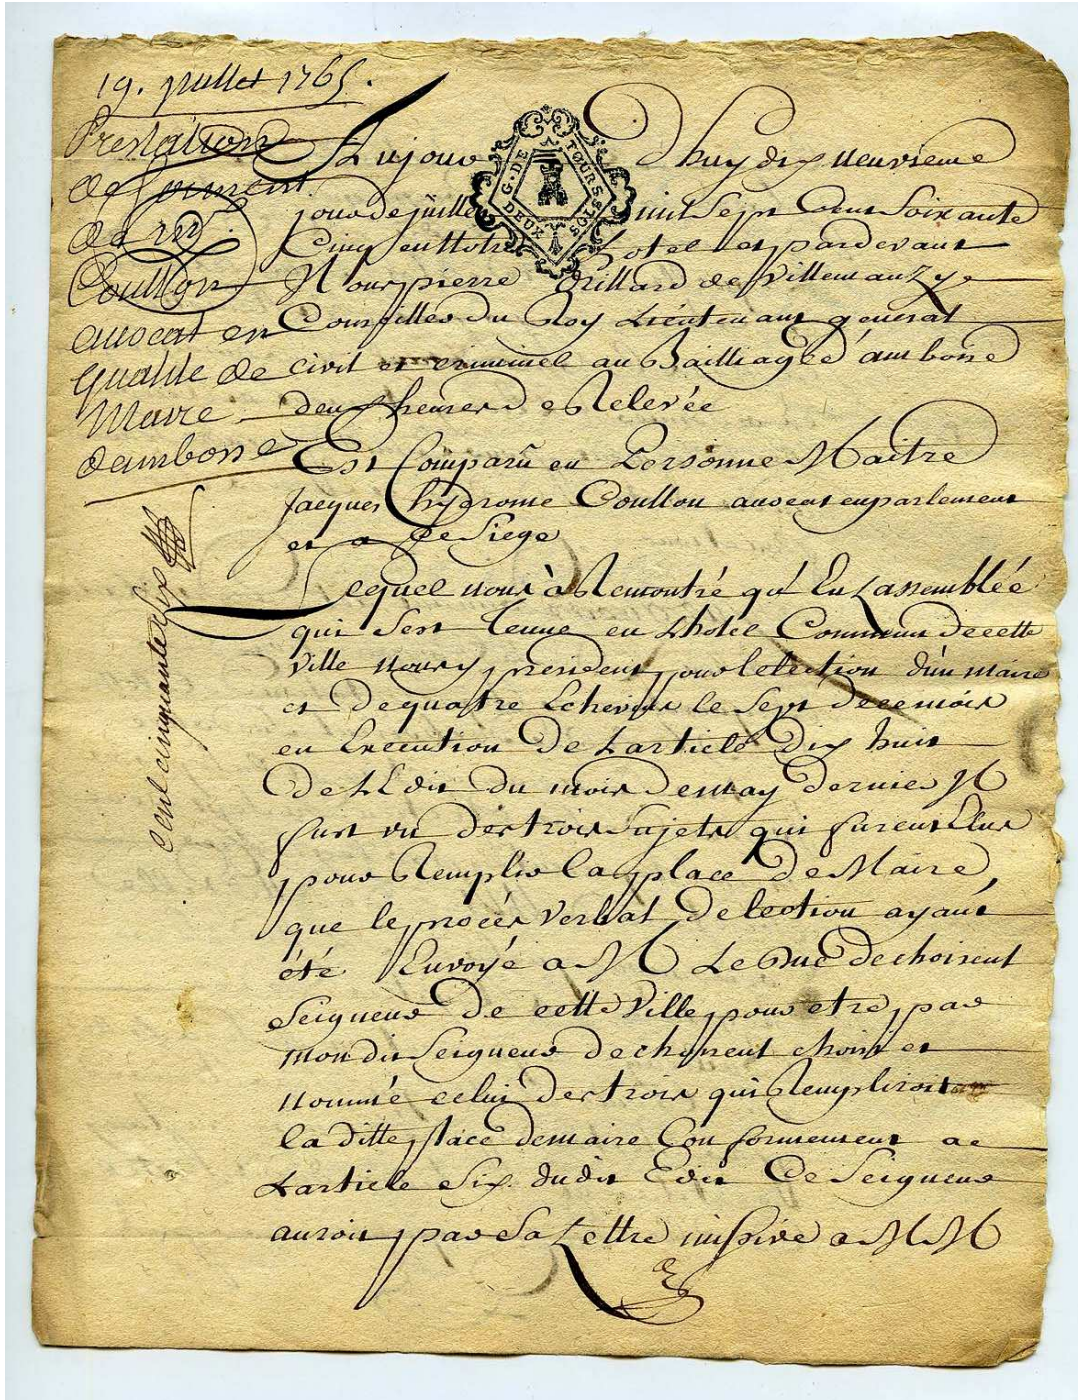 19. juillet 1765.
Prestation
de serment
de me.
Coullon
avocat en
qualité de
Maire
damboise
cent cinquante six
G. DE TOURS
DEUX SOLS
Aujourdhuy dix neuvieme
jour de juillet mil Sept Cent Soixante
Cinq en Notre hotel et pardevant
Nous pierre drillard de Villemanzy
Conseiller du Roy Lieutenant general
civil et criminel au Bailliage d'amboise
deux heures de Relevée
Est Comparu en Personne Maitre
Jacques Coullon avocat en parlement
et a ce Siege
Lequel nous à Remontré qu'En Lassemblée
qui Sest Tenue en Lhotel Commun de cette
Ville nous y president pour lelection d'un maire
et De quatre Echevins le Sept de ce mois
en Execution De Larticle Dix huit
De LEdit du mois De may Dernier Il
fut un des trois Sujets qui furent Elus
pour Remplir la place De Maire,
que le procès Verbal De lection ayant
été Envoyé a M Le Duc de choiseul
Seigneur De cette Ville pour etre par
mondit Seigneur de choiseul choisi et
nommé celui des trois qui Rempliroit
la ditte place de maire Conformement a
Larticle Six dudit Edit Ce Seigneur
auroit par Sa Lettre missive a MM